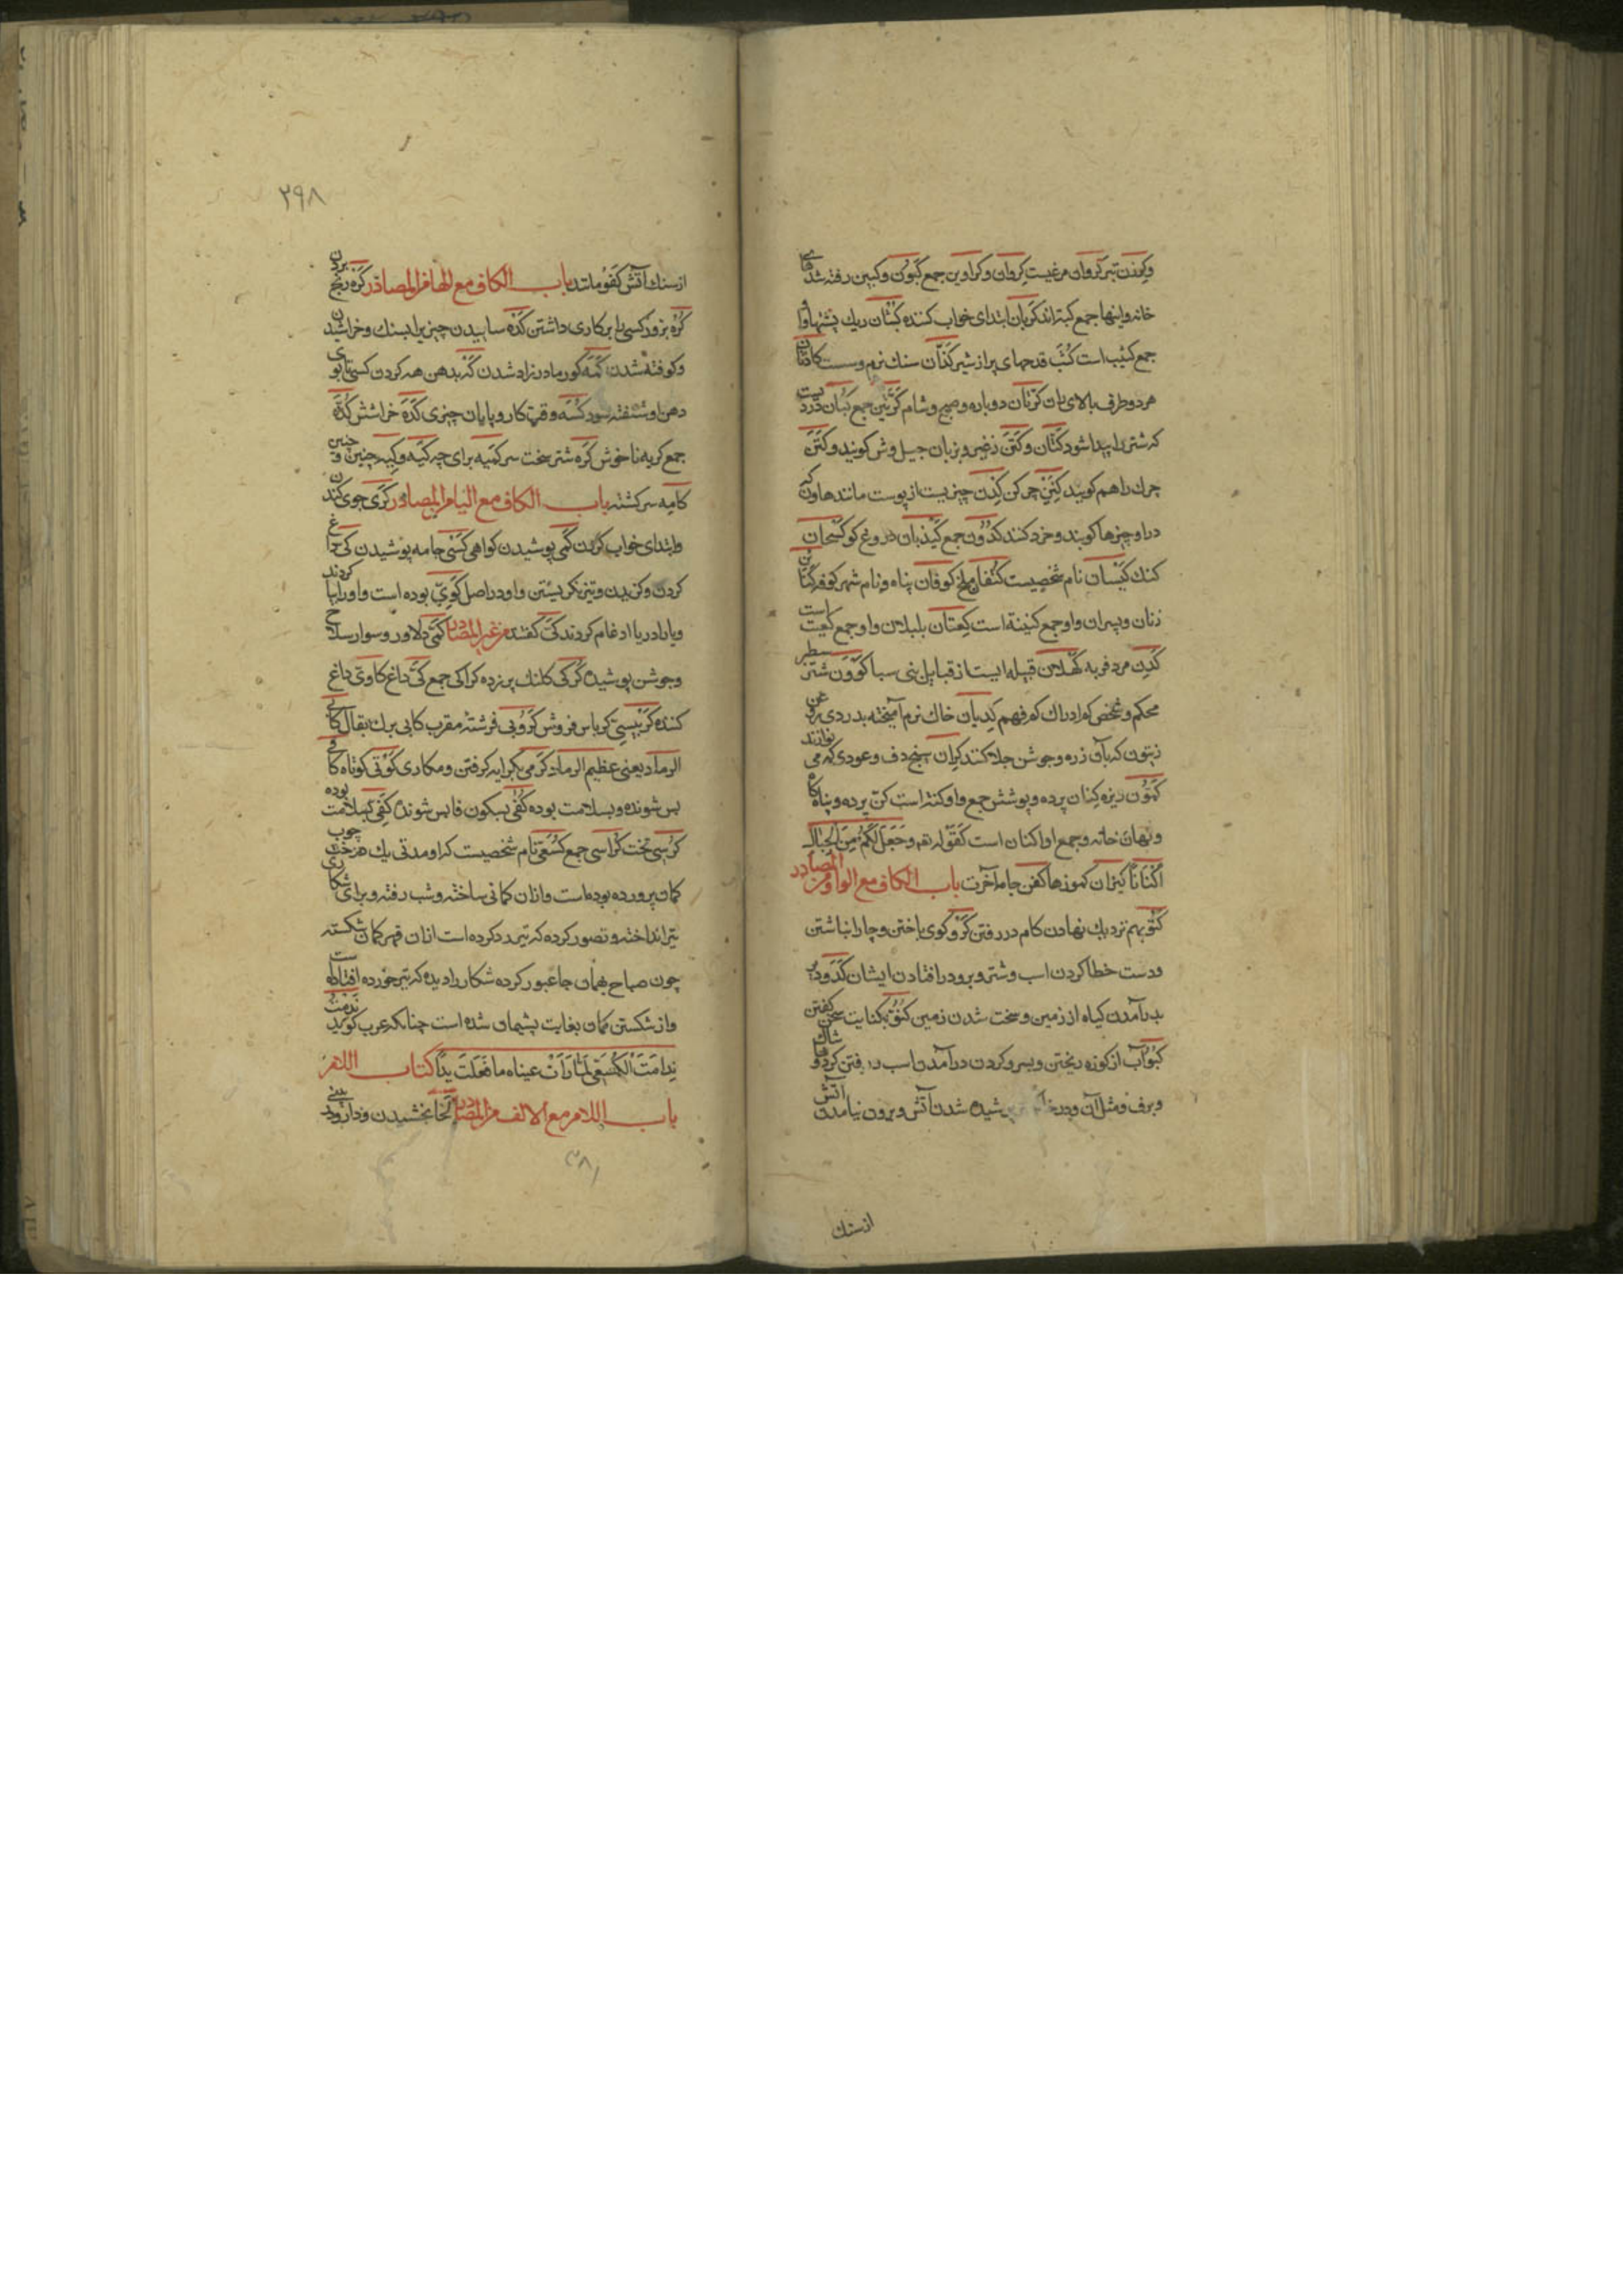 وکرزن تبر کروان مرغیست کروان وکراوین جمع کبون وکبین رفته شدهای
خانه واینها جمع کبه اند کربان ابتدای خواب کننده کثبان ریك پشتها واو
جمع کثیب است کثب قدحهای پر از شیر کذان سنك نرم وسست کاذتان
هر دو طرف بالای ران کرتان دوباره وصبح وشام کرتین جمع کبان دردیست
که شتر را پیدا شود کتان وکتن وبزبان جیل وش کویند وکتن
چرك را هم کویند کتین چرکن کذن چیزیست از پوست مانند هاون که
درا وچیزها کوبند وخرد کنند کذون جمع کیذبان دروغ کو کسحان
کنك کیسان نام شخصیست کتفان ملخ کوفان پناه ونام شهر کوفه کنائن
زنان وپسران واو جمع کنینه است کعتان بلبلان واو جمع کعیت است
کدن مرد فربه کهلان قبیله ایست از قبایل بنی سبا کوون شتر سطبر
محکم وشخص که ادراك که فهم کدیان خاك نرم آمیخته بدردی روغن
زیتون که بآن زره وجوشن جلا کنند کران سنج دف وعودی که می نوازند
کنون دیزه کنان پرده وپوشش جمع واو کننه است کن پرده وپناه کاه
ونهان خانه وجمع او اکنان است کقوله تع وجعل لکم من الجبال
اکنانا کیزان کموزها کفن جامه آخرت باب الکاف مع الواو من المصادر
کتو بهم نزدیك نهادن کام در رفتن کرو کوی باختن وچاه را انباشتن
ودست خطا کردن اسب وشتر وبرو در افتادن ایشان کدو دیر
بدر آمدن کیاه از زمین وسخت شدن زمین کنو بکنایت سخن کفتن
کبو آب از کوزه ریختن وبسرو کردن در آمدن اسب در رفتن کرد وخاشاك
وبرف ومثل آن ودر شیده شدن آتش وبیرون نیامدن آتش
از سنك
۲۹۸
از سنك آتش کفو مانند باب الکاف مع الها من المصادر کره رنج بردن
کره بزور کسی را بر کاری داشتن کده ساییدن چیزی را بسنك وخراشیدن
وکوفته شدن کمه کور مادرزاد شدن که بدهن هه کردن کسی تا بوی
دهن او شنفته شود کنه وقت کار وپایان چیزی کده خراشش کده
جمع کریه ناخوش کره شتر سخت سر کمیه برای چه کیه وکیه چنین وچنین
کامه سرکشته باب الکاف مع الیا من المصادر کری جوی کندن
وابتدای خواب کردن کمی پوشیدن کواهی کسی جامه پوشیدن کی داغ
کردن وکزیدن وتیز نکریستن واو در اصل کوی بوده است واو را یا کردند
ویا را در یا ادغام کردند کی کفتند من غیر المصادر کمی دلاور وسوار سلاح
وجوشن پوشیده کرکی کلنك پرنده کراکی جمع کی داغ کاوی داغ
کننده کربیسی کرباس فروش کروبی فرشته مقرب کابی بزرك یقال کابی
الرماد یعنی عظیم الرماد کرمی بکرایه کرفتن ومکاری کوتی کوتاه کافی
بس شونده وبسلامت بوده کفی بسکون فا بس شونده کفی بسلامت بوده
کرسی تخت کراسی جمع کسعی نام شخصیست که او مدتی یك درخت چوب
کمان پرورده بوده است وازان کمانی ساخته وشب رفته وبرای شکاری
تیر انداخته وتصور کرده که تیر رد کرده است ازان قهر کمان شکسته
چون صباح بهمان جا عبور کرده شکار را دیده که تیر خورده افتاده است
واز شکستن کمان بغایت پشیمان شده است چنانکه عرب کوید ندمت
ندامت الکسعی لما رات عیناه ما فعلت یدا کتاب اللام
باب اللام مع الالف من المصادر لخا بخشیدن ودارو در بینی